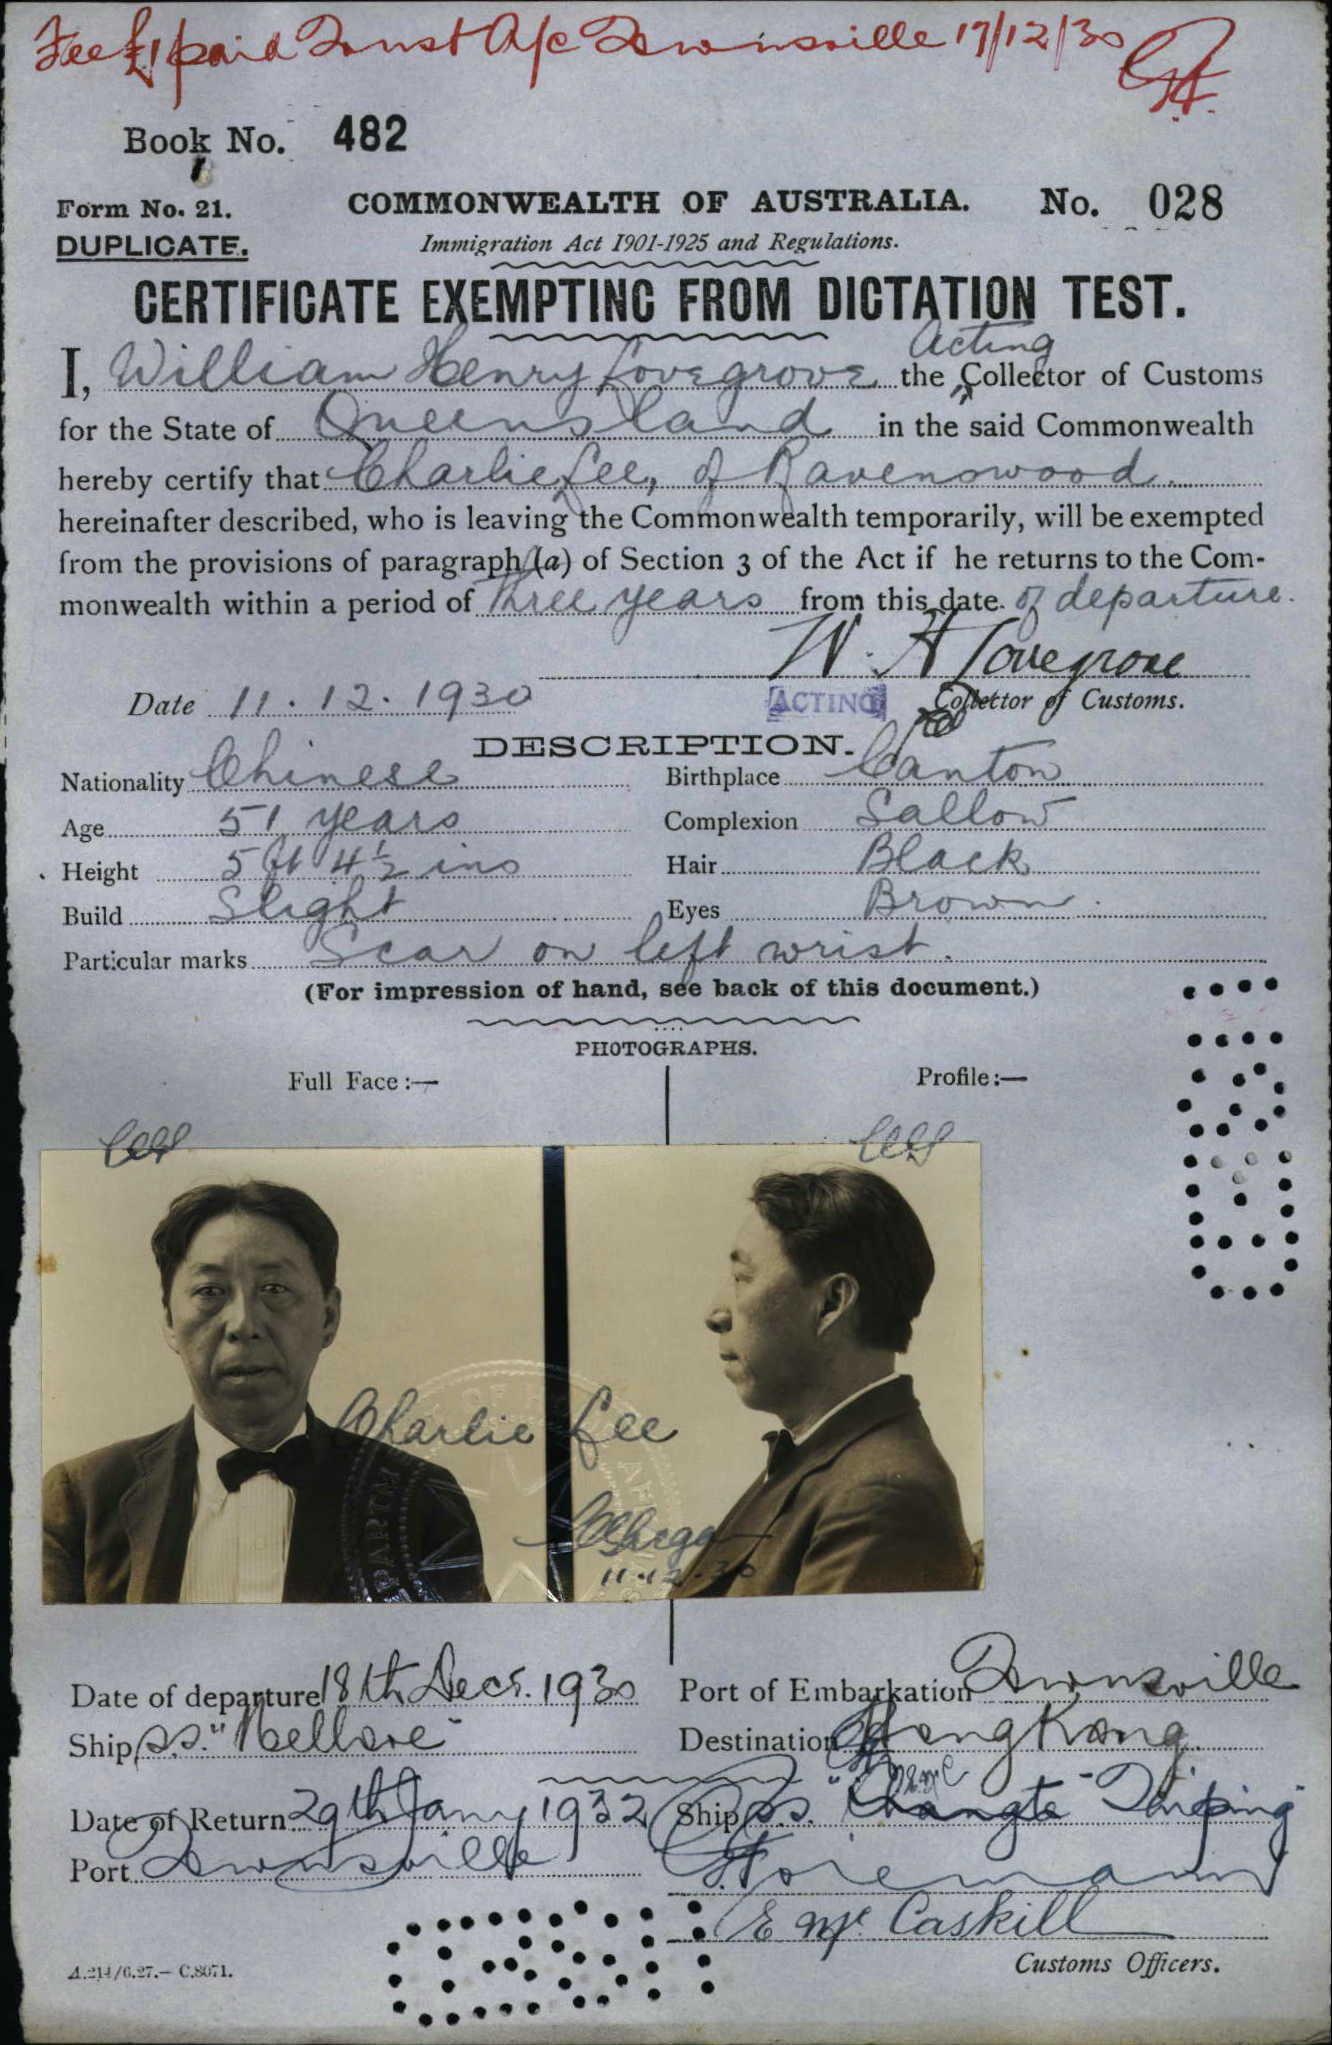 Fee £1 paid Trust A/c Townsville 17/12/30
Book No. 482
Form No. 21. COMMONWEALTH OF AUSTRALIA. No. 028
DUPLICATE. Immigration Act 1901-1925 and Regulations.
CERTIFICATE EXEMPTING FROM DICTATION TEST.
Acting
I, William Henry Lovegrove the Collector of Customs
for the State of Queensland in the said Commonwealth
hereby certify that Charlie Lee, of Ravenswood.
hereinafter described, who is leaving the Commonwealth temporarily, will be exempted
from the provisions of paragraph (a) of Section 3 of the Act if he returns to the Com-
monwealth within a period of three years from this date of departure.
W. H Lovegrove
Date 11.12.1930 ACTING Collector of Customs.
DESCRIPTION.
Nationality Chinese Birthplace Canton
Age 51 years Complexion Sallow
Height 5 ft 4½ ins Hair Black
Build Slight Eyes Brown
Particular marks Scar on left wrist.
(For impression of hand, see back of this document.)
PHOTOGRAPHS.
Full Face:— Profile:—
Charlie Lee
11.12.30
Date of departure 18th Decr. 1930 Port of Embarkation Townsville
Ship s.s. "Nellore" Destination Hong Kong
Date of Return 29th Jany 1932 Ship s.s. "Changte" "Taiping"
Port Townsville
Foreman
E McCaskill
A.214/6.27.— C.8071. Customs Officers.